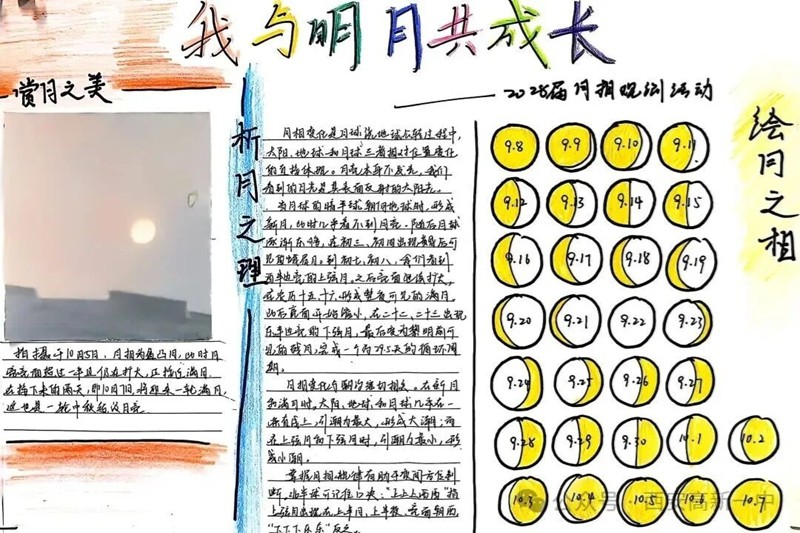 我与明月共成长
2028届月相观测活动
赏月之美
拍摄于10月5日,月相为盈凸月,此时月
亮亮面超过一半且仍在扩大,正接近满月。
在接下来的两天,即10月7日,将迎来一轮满月,
这也是一轮中秋后的月亮。
析月之理
月相变化是月球绕地球公转过程中,
太阳、地球和月球三者相对位置变化
的直接体现。月亮本身不发光,我们
看到的月光是其表面反射的太阳光。
当月球的暗半球朝向地球时,形成
新月,此时几乎看不到月亮。随后月球
逐渐东移,在初三、初四出现黄昏后可
见的蛾眉月。到初七、初八,我们看到
右半边亮的上弦月。之后亮面继续扩大,
在农历十五、十六形成整夜可见的满月。
此后亮面开始缩小,在二十二、二十三出现
左半边亮的下弦月,最后变为黎明前可
见的残月,完成一个约29.5天的循环周
期。
月相变化与潮汐密切相关。在新月
和满月时,太阳、地球和月球几乎在一
条直线上,引潮力最大,形成大潮;而
在上弦月和下弦月时,引潮力最小,形
成小潮。
掌握月相规律有助于夜间方位判
断,北半球可记住口诀:“上上上西西”指
上弦月出现在上半月、上半夜,亮面朝西
“下下下东东”反之。
绘月之相
9.8 9.9 9.10 9.11
9.12 9.13 9.14 9.15
9.16 9.17 9.18 9.19
9.20 9.21 9.22 9.23
9.24 9.25 9.26 9.27
9.28 9.29 9.30 10.1 10.2
10.3 10.4 10.5 10.6 10.7
公众号·西安高新一中